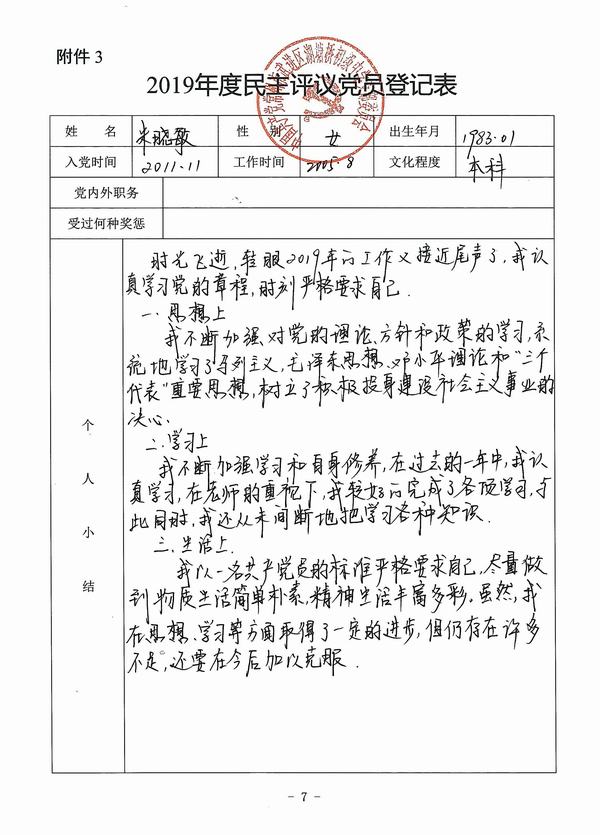 附件 3
2019年度民主评议党员登记表
姓 名 朱晓敏 性 别 女 出生年月 1983.01
入党时间 2011.11 工作时间 2005.8 文化程度 本科
党内外职务
受过何种奖惩
个人小结
时光飞逝,转眼2019年的工作又接近尾声了,我认
真学习党的章程,时刻严格要求自己.
一.思想上
我不断加强对党的理论、方针和政策的学习,系
统地学习了马列主义,毛泽东思想、邓小平理论和"三个
代表"重要思想,树立了积极投身建设社会主义事业的
决心.
二.学习上
我不断加强学习和自身修养,在过去的一年中,我认
真学习,在老师的重视下,我较好的完成了各项学习,与
此同时,我还从未间断地把学习各种知识.
三.生活上
我以一名共产党员的标准严格要求自己,尽量做
到物质生活简单朴素,精神生活丰富多彩.虽然,我
在思想、学习等方面取得了一定的进步,但仍存在许多
不足,还要在今后加以克服.
- 7 -